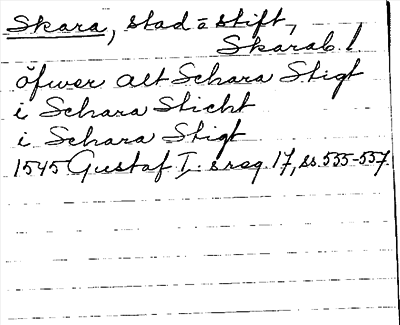 Skara, stad o stift,
Skarab. l
öfwer alt Schara Stigt
i Schara Sticht
i Schara Stigt
1545 Gustaf I:s reg. 17, ss. 555-557.